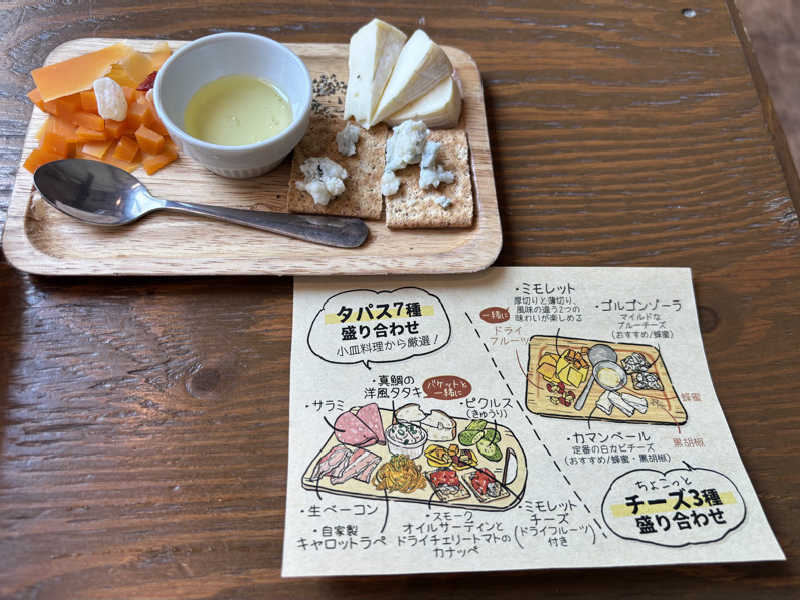 タパス7種
盛り合わせ
小皿料理から厳選！
・真鯛の
洋風タタキ
バケットと
一緒に
・サラミ
・ピクルス
(きゅうり)
・生ベーコン
・自家製
キャロットラペ
・スモーク
オイルサーディンと
ドライチェリートマトの
カナッペ
・ミモレット
チーズ
(ドライフルーツ
付き)
・ミモレット
厚切りと薄切り、
風味の違う2つの
味わいが楽しめる
一緒に
ドライ
フルーツ
・ゴルゴンゾーラ
マイルドな
ブルーチーズ
(おすすめ/蜂蜜)
蜂蜜
黒胡椒
・カマンベール
定番の白カビチーズ
(おすすめ/蜂蜜・黒胡椒)
ちょこっと
チーズ3種
盛り合わせ